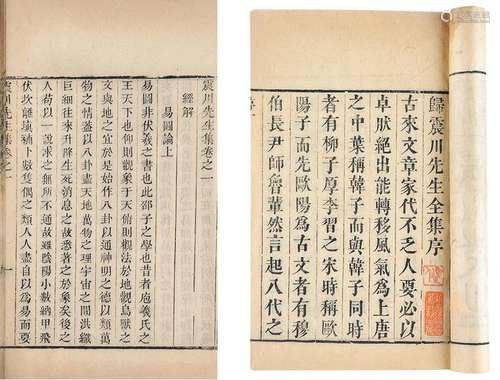 歸震川先生全集序
古來文章家代不乏人要必以
卓肰絕出能轉移風氣為上唐
之中葉稱韓子而與韓子同時
者有柳子厚李習之宋時稱歐
陽子而先歐陽為古文者有穆
伯長尹師魯輩然言起八代之
震川先生集卷之一
經解
易圖論上
易圖非伏羲之書也此邵子之學也昔者庖羲氏之
王天下也仰則觀象於天俯則觀法於地觀鳥獸之
文與地之宜於是始作八卦以通神明之德以類萬
物之情蓋以八卦盡天地萬物之理宇宙之間洪纖
巨細往來升降生死消息之故悉著之於象矣後之
人苟以一說求之無所不通故雖陰陽小數納甲飛
伏坎離填補卜數隻偶之類人人盡自以為易而要
震川先生集卷之一
一